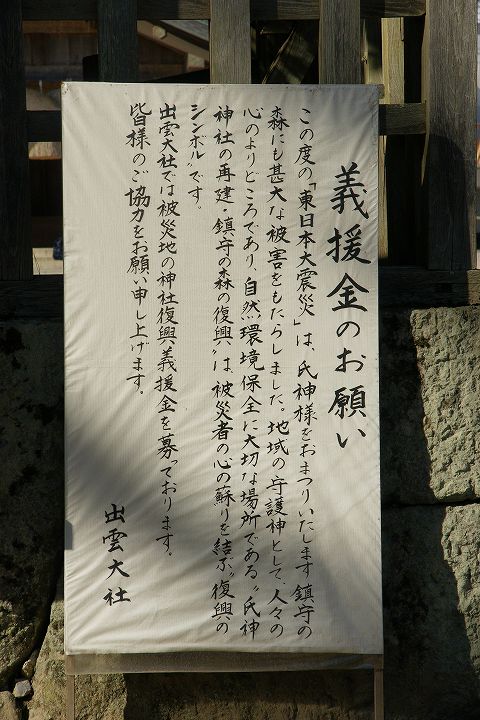 義援金のお願い
この度の「東日本大震災」は、氏神様をおまつりいたします鎮守の
森にも甚大な被害をもたらしました。地域の守護神として、人々の
心のよりどころであり、自然環境保全に大切な場所である〝氏神
神社の再建・鎮守の森の復興〟は、被災者の心の蘇りを結ぶ〝復興の
シンボル〟です。
出雲大社では被災地の神社復興義援金を募っております。
皆様のご協力をお願い申し上げます。
出雲大社